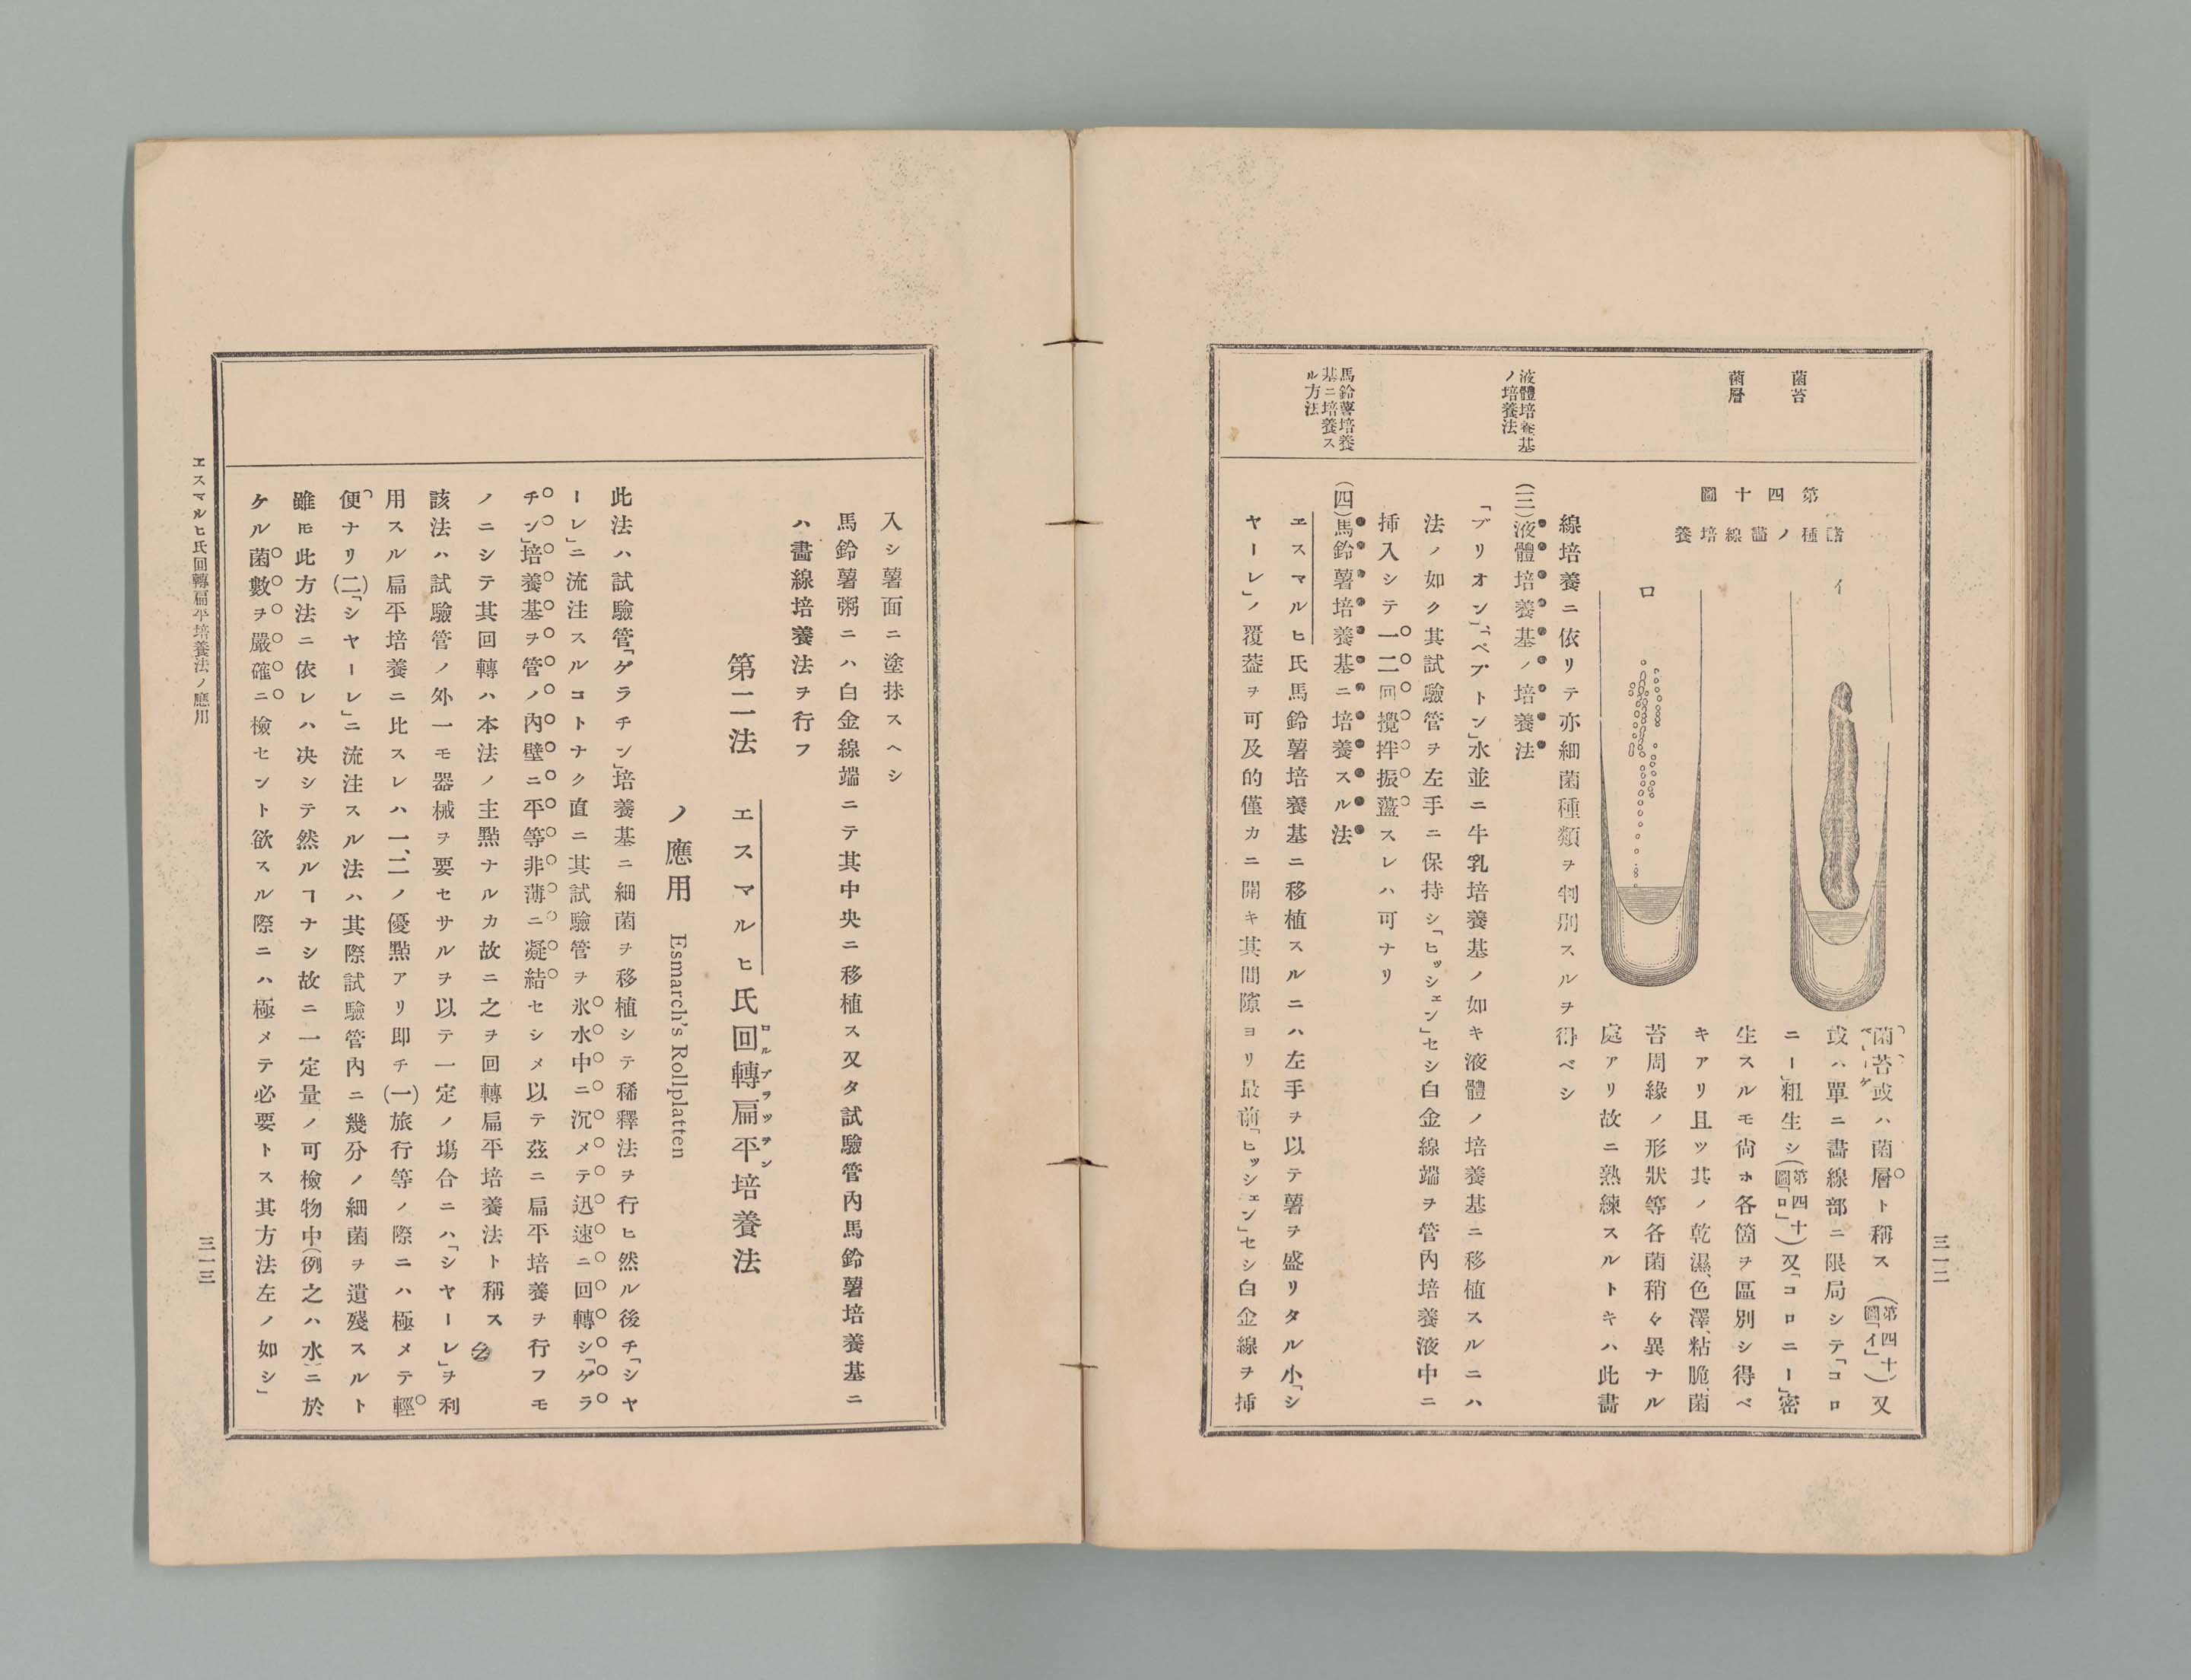 三一二
菌苔
菌層
液體培養基
ノ培養法
馬鈴薯培養
基ニ培養ス
ル方法
第四十圖
諸種ノ畫線培養
イ
ロ
菌苔或ハ菌層ト稱ス(第四十圖「イ」)又
或ハ單ニ畫線部ニ限局シテ「コロ
ニー」粗生シ(第四十圖「ロ」)又「コロニー」密
生スルモ尙ホ各箇ヲ區別シ得ベ
キアリ且ツ其ノ乾濕、色澤、粘脆、菌
苔周緣ノ形狀等各菌稍々異ナル
處アリ故ニ熟練スルトキハ此畫
線培養ニ依リテ亦細菌種類ヲ判別スルヲ得ベシ
(三)液體培養基ノ培養法
「ブリオン」、「ペプトン」水並ニ牛乳培養基ノ如キ液體ノ培養基ニ移植スルニハ
法ノ如ク其試驗管ヲ左手ニ保持シ「ヒッシェン」セシ白金線端ヲ管內培養液中ニ
挿入シテ一二回攪拌振盪スレハ可ナリ
(四)馬鈴薯培養基ニ培養スル法
エスマルヒ氏馬鈴薯培養基ニ移植スルニハ左手ヲ以テ薯ヲ盛リタル小「シ
ヤーレ」ノ覆葢ヲ可及的僅カニ開キ其間隙ヨリ最前「ヒッシェン」セシ白金線ヲ挿
入シ薯面ニ塗抹スヘシ
馬鈴薯粥ニハ白金線端ニテ其中央ニ移植ス又タ試驗管內馬鈴薯培養基ニ
ハ畫線培養法ヲ行フ
第二法 エスマルヒ氏回轉扁平培養法
ロルプラッテン
ノ應用 Esmarch's Rollplatten
此法ハ試驗管「ゲラチン」培養基ニ細菌ヲ移植シテ稀釋法ヲ行ヒ然ル後チ「シヤ
ーレ」ニ流注スルコトナク直ニ其試驗管ヲ氷水中ニ沉メテ迅速ニ回轉シ「ゲラ
チン」培養基ヲ管ノ內壁ニ平等非薄ニ凝結セシメ以テ茲ニ扁平培養ヲ行フモ
ノニシテ其回轉ハ本法ノ主點ナルカ故ニ之ヲ回轉扁平培養法ト稱ス
該法ハ試驗管ノ外一モ器械ヲ要セサルヲ以テ一定ノ塲合ニハ「シヤーレ」ヲ利
用スル扁平培養ニ比スレハ一、二ノ優點アリ卽チ(一)旅行等ノ際ニハ極メテ輕
便ナリ(二)「シヤーレ」ニ流注スル法ハ其際試驗管內ニ幾分ノ細菌ヲ遺殘スルト
雖モ此方法ニ依レハ決シテ然ルヿナシ故ニ一定量ノ可檢物中(例之ハ水)ニ於
ケル菌數ヲ嚴確ニ檢セント欲スル際ニハ極メテ必要トス其方法左ノ如シ」
エスマルヒ氏回轉扁平培養法ノ應用
三一三